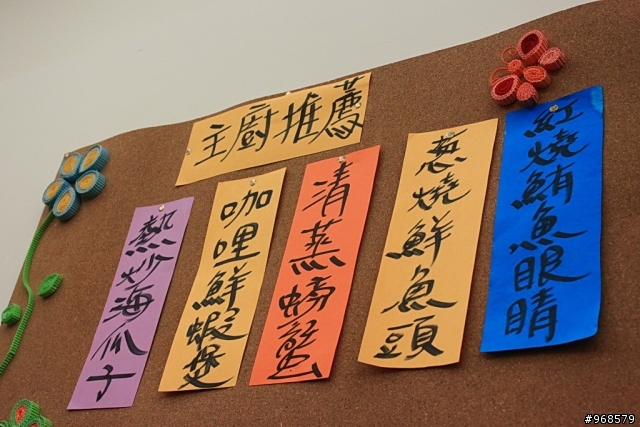 主廚推薦
紅燒鮪魚眼睛
蔥燒鮮魚頭
清蒸螃蟹
咖哩鮮蝦煲
熱炒海瓜子
#968579